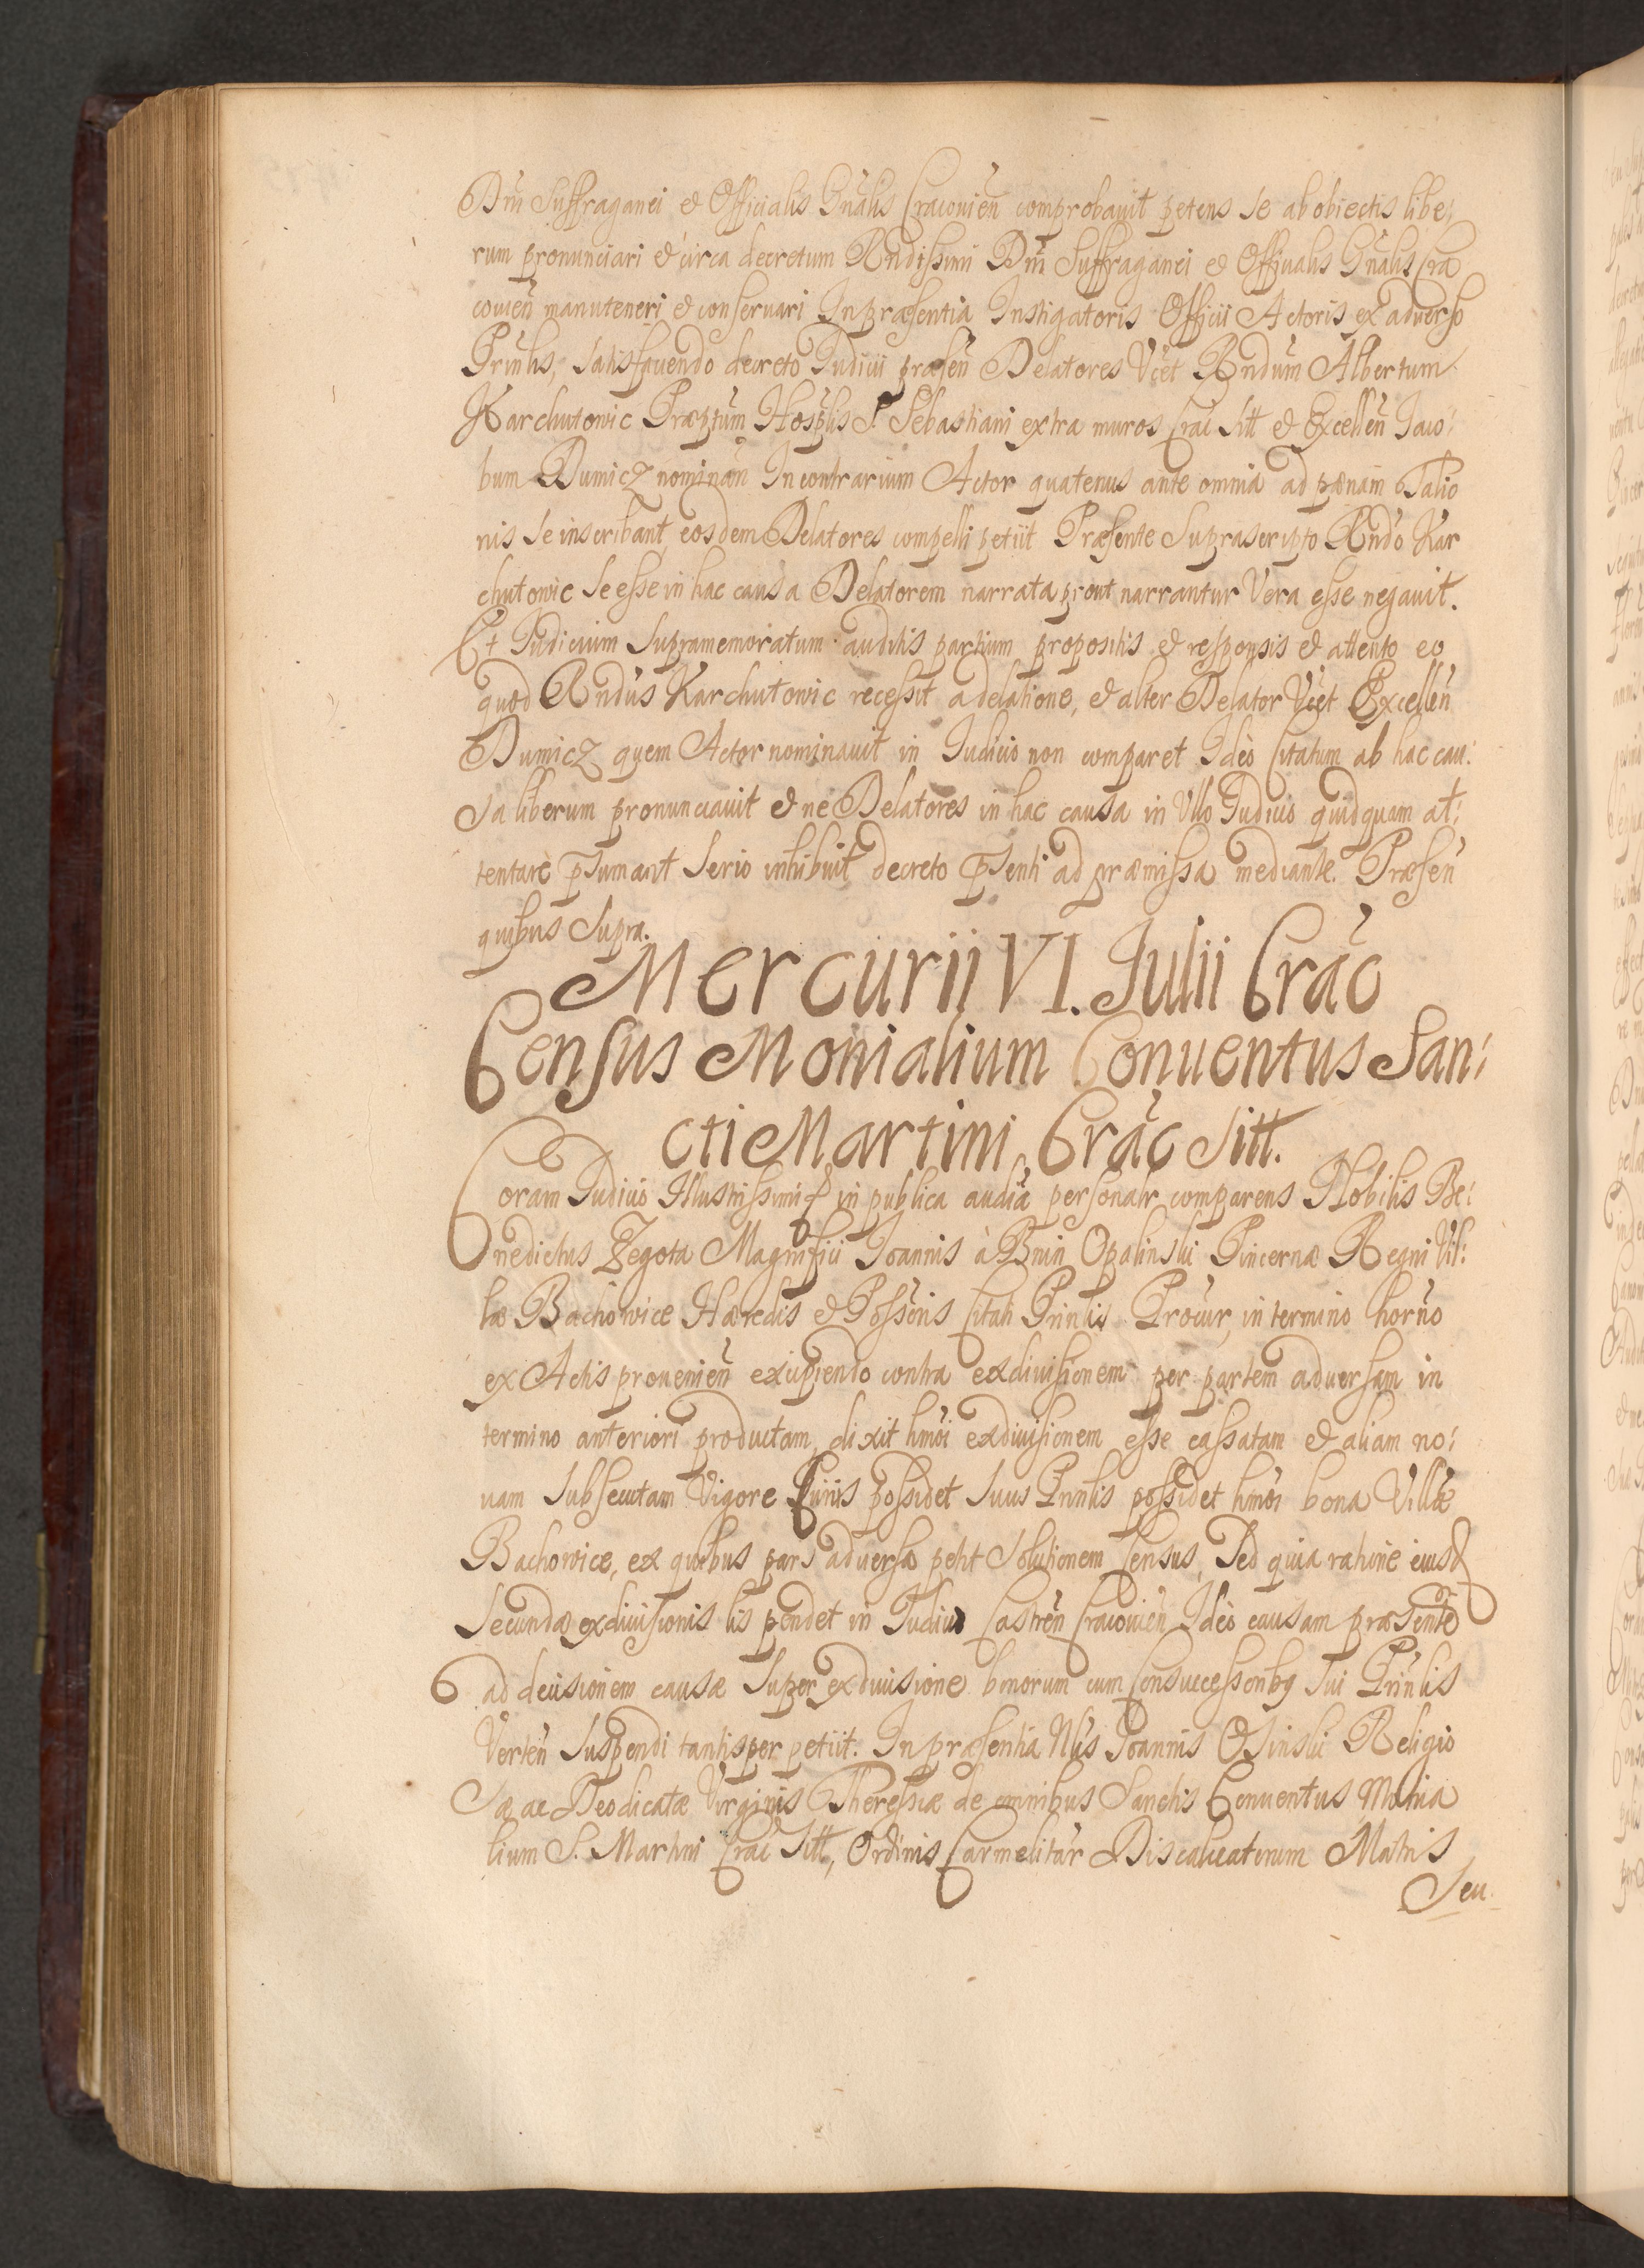 Dni Suffraganei et Officialis Gnalis Cracouien comprobauit petens se ab obiectis libe:
rum pronunciari et circa decretum Rndissimi Dni Suffraganei et Offivalis Gnalis Cra
couien manuteneri et conseruari In præsentia Instigatoris Officii Actoris ex aduerso
Prinlis, satisfaciendo decreto Iudicii præsen Delatores Vcet Rndum Albertum
Karchutowic Præptum Hosplis S. Sebastiani extra muros Crac Sitt et Excellen Iaco:
bum Dumicz nominan In contrarium Actor quatenus ante omnia ad pænam Talio
nis se inscribant, eosdem Delatores compelli petiit Præsente Suprascripto Rndo Kar
chutowic se esse in hac causa Delatorem narrata prout narrantur Vera esse negauit.
Et Iudicium Supramemoratum auditis partium propositis et responsis et attento eo
quod Rndus Karchutowic recessit a delatione, et alter Delator Vcet Excellen
Dumicz quem Actor nominauit in Iudicio non comparet Ideo Citatum ab hac cau:
sa liberum pronunciauit et ne Delatores in hac causa in Vllo Iudicio quidquam at:
tentare psumant serio inhibuit decreto psenti ad præmissa mediante. Præsen
quibus supra.
Mercurii VI. Iulii Crac
Census Monialium Conuentus San:
cti Martini Crac Sitt.
Coram Iudicio Illustrissimi in publica audia personalr comparens Nobilis Be:
nedictus Zegota Magnifici Ioannis à Bnin Opalinski Pincernæ Regni Vil:
læ Bachowice Hæredis et Possoris Citati Prinlis Procur, in termino horno
ex Actis prouenien excipiendo contra exdiuisionem per partem aduersam in
termino anteriori productam, dixit hmoi exdiuisionem esse cassatam et aliam no:
uam subsecutam Vigore cuius possidet suus Prinlis possidet hmoi bona Villæ
Bachowice, ex quibus pars aduersa petit Solutionem Census, Sed quia ratione eiusd
Secundæ exdiuisionis lis pendet in Iudicio Castren Cracouien Ideo causam præsente
ad decisionem causæ super exdiuisione bonorum cum Consuccessoribus sui Prinlis
Verten suspendi tantisper petiit. In præsentia Nlis Ioannis Osinski Religio
sæ ac Deodicatæ Virginis Theressiæ de omnibus Sanctis Conuentus Monia
lium S. Martini Crac Sitt, Ordinis Carmelitar Discalceatorum Matris
Seu